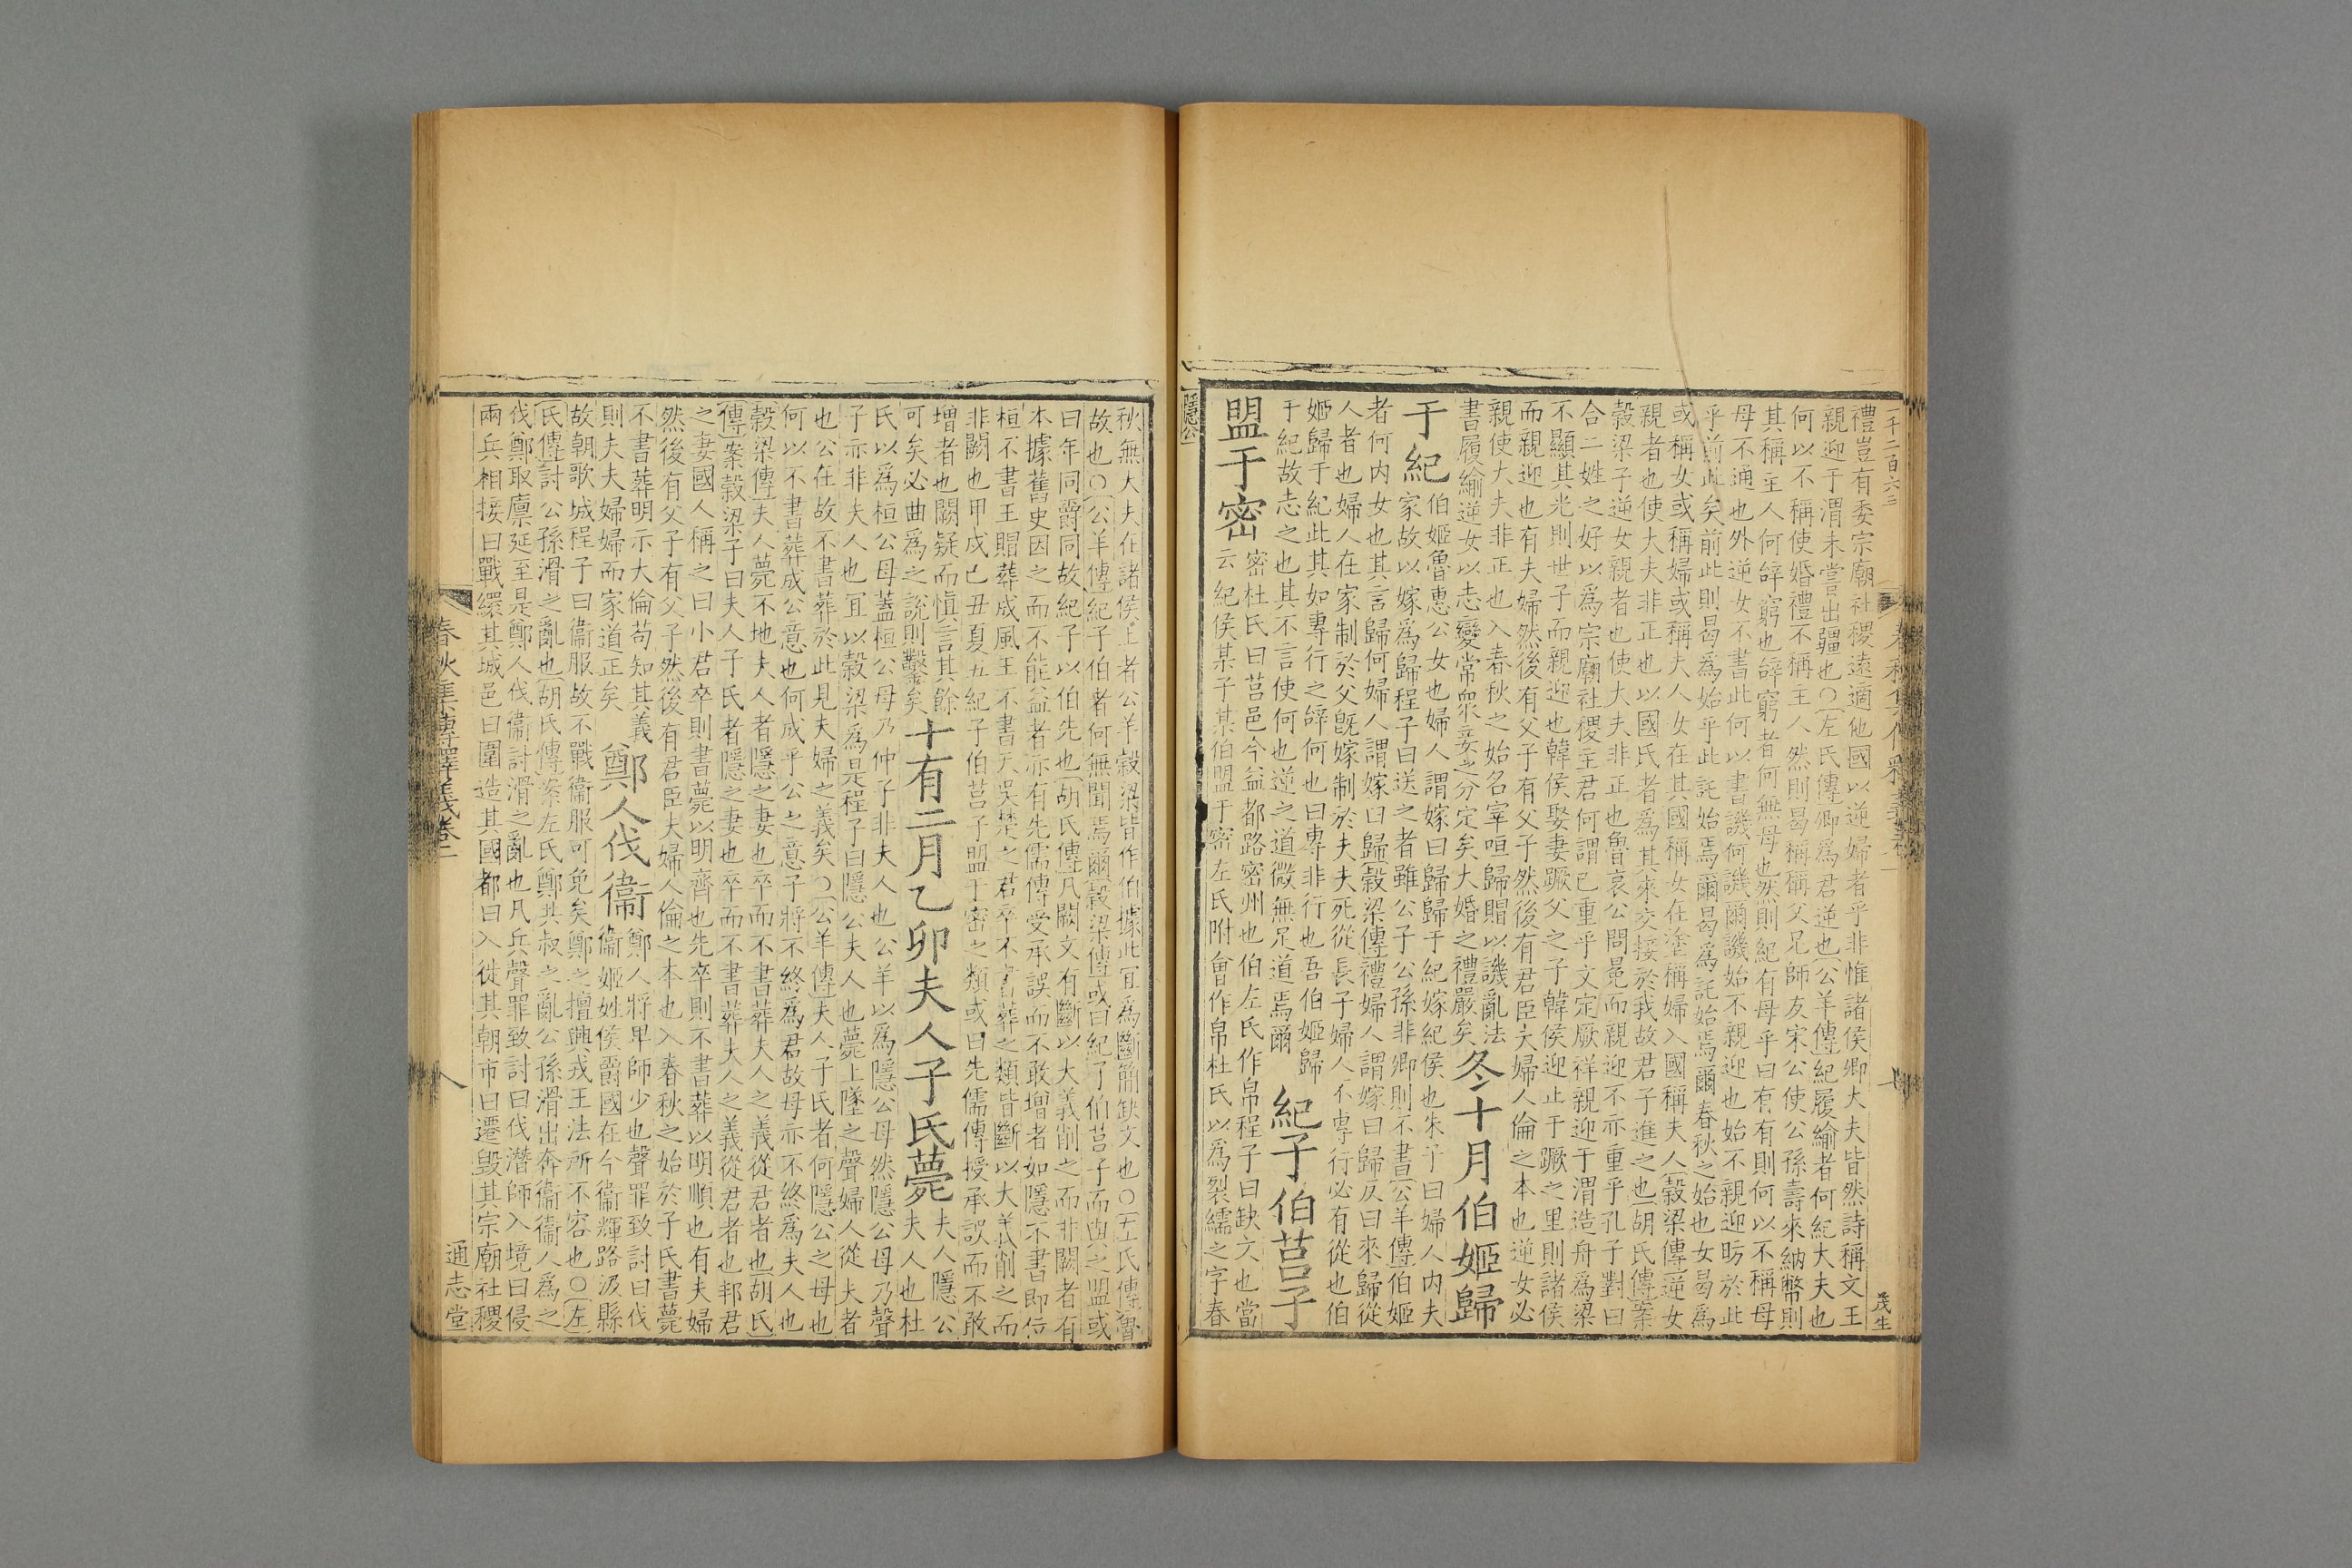 禮豈有委宗廟社稷遠適他國以逆婦者乎非惟諸侯卿大夫皆然詩稱文王
親迎于渭未嘗出疆也○左氏傳卿爲君逆也公羊傳紀履緰者何紀大夫也
何以不稱使婚禮不稱主人然則曷稱稱父兄師友宋公使公孫壽來納幣則
其稱主人何辭窮也辭窮者何無母也然則紀有母乎曰有有則何以不稱母
母不通也外逆女不書此何以書譏何譏爾譏始不親迎也始不親迎昉於此
乎前此矣前此則曷爲始乎此託始焉爾曷爲託始焉爾春秋之始也女曷爲
或稱女或稱婦或稱夫人女在其國稱女在塗稱婦入國稱夫人穀梁傳逆女
親者也使大夫非正也以國氏者爲其來交接於我故君子進之也胡氏傳案
穀梁子逆女親者也使大夫非正也魯哀公問冕而親迎不亦重乎孔子對曰
合二姓之好以爲宗廟社稷主君何謂已重乎文定厥祥親迎于渭造舟爲梁
不顯其光則世子而親迎也韓侯娶妻蹶父之子韓侯迎止于蹶之里則諸侯
而親迎也有夫婦然後有父子有父子然後有君臣夫婦人倫之本也逆女必
親使大夫非正也入春秋之始名宰咺歸賵以譏亂法
書履緰逆女以志變常衆妾之分定矣大婚之禮嚴矣
冬十月伯姬歸
于紀
伯姬魯惠公女也婦人謂嫁曰歸歸于紀嫁紀侯也朱子曰婦人内夫
家故以嫁爲歸程子曰送之者雖公子公孫非卿則不書公羊傳伯姬
者何内女也其言歸何婦人謂嫁曰歸穀梁傳禮婦人謂嫁曰歸反曰來歸從
人者也婦人在家制於父旣嫁制於夫夫死從長子婦人不專行必有從也伯
姬歸于紀此其如專行之辭何也曰專非行也吾伯姬歸
于紀故志之也其不言使何也逆之道微無足道焉爾
紀子伯莒子
盟于密
密杜氏曰莒邑今益都路密州也伯左氏作帛程子曰缺文也當
云紀侯某子某伯盟于密左氏附會作帛杜氏以爲裂繻之字春
隱公
秋無大夫在諸侯上者公羊穀梁皆作伯據此宜爲斷簡缺文也○左氏傳魯
故也○公羊傳紀子伯者何無聞焉爾穀梁傳或曰紀子伯莒子而與之盟或
曰年同爵同故紀子以伯先也胡氏傳凡闕文有斷以大義削之而非闕者有
本據舊史因之而不能益者亦有先儒傳受承誤而不敢增者如隱不書即位
桓不書王賵葬成風王不書天吳楚之君卒不書葬之類皆斷以大義削之而
非闕也甲戌己丑夏五紀子伯莒子盟于密之類或曰先儒傳授承誤而不敢
增者也闕疑而愼言其餘
可矣必曲爲之說則鑿矣
十有二月乙卯夫人子氏薨
夫人隱公
夫人也杜
氏以爲桓公母蓋桓公母乃仲子非夫人也公羊以爲隱公母然隱公母乃聲
子亦非夫人也宜以穀梁爲是程子曰隱公夫人也薨上墜之聲婦人從夫者
也公在故不書葬於此見夫婦之義矣○公羊傳夫人子氏者何隱公之母也
何以不書葬成公意也何成乎公之意子將不終爲君故母亦不終爲夫人也
穀梁傳夫人薨不地夫人者隱之妻也卒而不書葬夫人之義從君者也胡氏
傳案穀梁子曰夫人子氏者隱之妻也卒而不書葬夫人之義從君者也邦君
之妻國人稱之曰小君卒則書薨以明齊也先卒則不書葬以明順也有夫婦
然後有父子有父子然後有君臣夫婦人倫之本也入春秋之始於子氏書薨
不書葬明示大倫苟知其義
則夫夫婦婦而家道正矣
鄭人伐衞
鄭人將卑師少也聲罪致討曰伐
衞姬姓侯爵國在今衞輝路汲縣
故朝歌城程子曰衞服故不戰衞服可免矣鄭之擅興戎王法所不容也○左
氏傳討公孫滑之亂也胡氏傳案左氏鄭共叔之亂公孫滑出奔衞衞人爲之
伐鄭取廪延至是鄭人伐衞討滑之亂也凡兵聲罪致討曰伐潛師入境曰侵
兩兵相接曰戰繯其城邑曰圍造其國都曰入徙其朝市曰遷毀其宗廟社稷
春秋集傳釋義卷二
八
通志堂